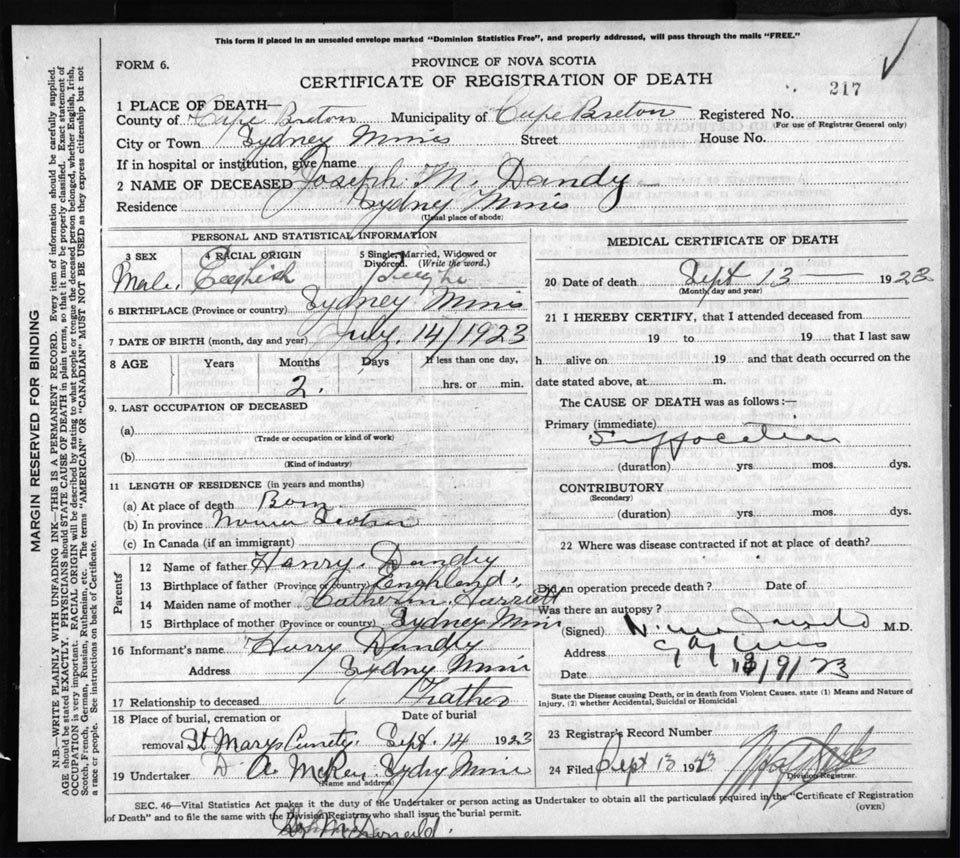 This form if placed in an unsealed envelope marked "Dominion Statistics Free", and properly addressed, will pass through the mails "FREE."
FORM 6.
PROVINCE OF NOVA SCOTIA
CERTIFICATE OF REGISTRATION OF DEATH
217
1 PLACE OF DEATH—
County of Cape Breton Municipality of Cape Breton Registered No.
(For use of Registrar General only)
City or Town Sydney Mines Street House No.
If in hospital or institution, give name
2 NAME OF DECEASED Joseph M. Dandy
Residence Sydney Mines
(Usual place of abode)
PERSONAL AND STATISTICAL INFORMATION
3 SEX 4 RACIAL ORIGIN 5 Single, Married, Widowed or Divorced. (Write the word.)
Male. English Single
6 BIRTHPLACE (Province or country) Sydney Mines
7 DATE OF BIRTH (month, day and year) July. 14/1923
8 AGE Years Months Days If less than one day,
2. hrs. or min.
9. LAST OCCUPATION OF DECEASED
(a)
(Trade or occupation or kind of work)
(b)
(Kind of industry)
11 LENGTH OF RESIDENCE (in years and months)
(a) At place of death Born
(b) In province Nova Scotia
(c) In Canada (if an immigrant)
Parents'
12 Name of father Harry Dandy
13 Birthplace of father (Province or country) England.
14 Maiden name of mother Catherin Harriett
15 Birthplace of mother (Province or country) Sydney Mines
16 Informant's name Harry Dandy
Address Sydney Mines
17 Relationship to deceased Father
18 Place of burial, cremation or removal Date of burial
St Marys Sept. 14 1923
19 Undertaker D. A. McRey. Sydny Mines
(Name and address)
MEDICAL CERTIFICATE OF DEATH
20 Date of death Sept 13 1923
(Month, day and year)
21 I HEREBY CERTIFY, that I attended deceased from
19 to 19 that I last saw
h alive on 19 and that death occurred on the
date stated above, at m.
The CAUSE OF DEATH was as follows:—
Primary (immediate)
Suffocation
(duration) yrs. mos. dys.
CONTRIBUTORY
(Secondary)
(duration) yrs. mos. dys.
22 Where was disease contracted if not at place of death?
Did an operation precede death? Date of
Was there an autopsy?
(Signed) M.D.
Address
Date 13/9/23
State the Disease causing Death, or in death from Violent Causes, state (1) Means and Nature of
Injury, (2) whether Accidental, Suicidal or Homicidal
23 Registrar's Record Number
24 Filed Sept 13 1923
Division Registrar.
SEC. 46—Vital Statistics Act makes it the duty of the Undertaker or person acting as Undertaker to obtain all the particulars required in the "Certificate of Registration
of Death" and to file the same with the Division Registrar who shall issue the burial permit.
(OVER)
MARGIN RESERVED FOR BINDING
N.B.—WRITE PLAINLY WITH UNFADING INK—THIS IS A PERMANENT RECORD. Every item of information should be carefully supplied.
AGE should be stated EXACTLY. PHYSICIANS should STATE CAUSE OF DEATH in plain terms, so that it may be properly classified. Exact statement of
OCCUPATION is very important. RACIAL ORIGIN will be described by stating to what people or tongue the deceased person belonged, whether English, Irish,
Scotch, French, German, Russian, Ruthenian, etc. The terms "AMERICAN" OR "CANADIAN" MUST NOT BE USED as they express citizenship but not
a race or people. See instructions on back of Certificate.